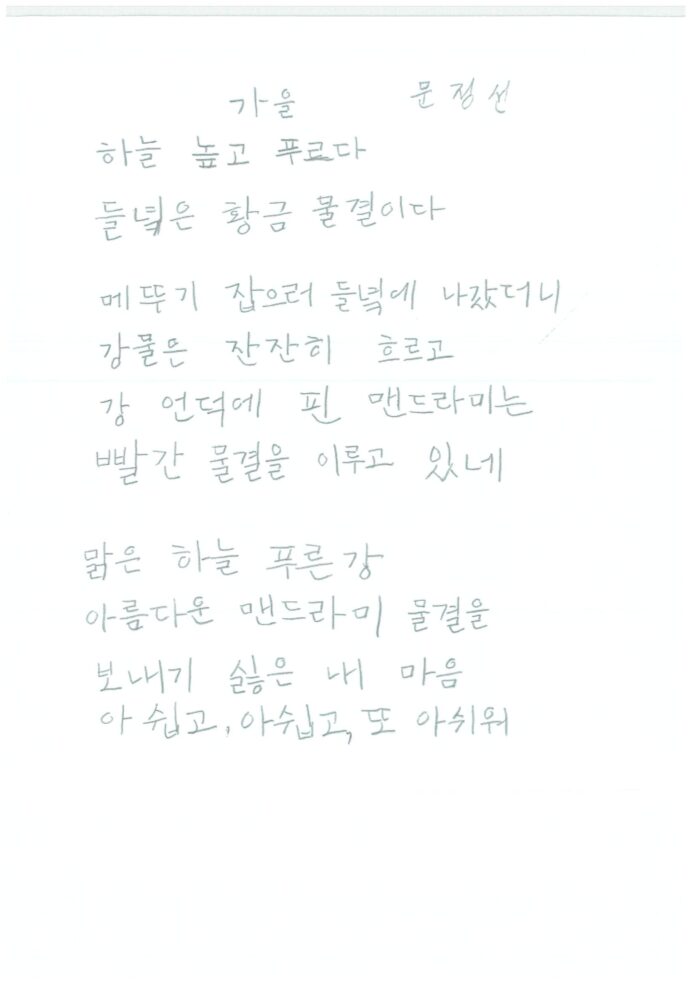 가을 문정선
하늘 높고 푸르다
들녘은 황금 물결이다
메뚜기 잡으러 들녘에 나갔더니
강물은 잔잔히 흐르고
강 언덕에 핀 맨드라미는
빨간 물결을 이루고 있네
맑은 하늘 푸른강
아름다운 맨드라미 물결을
보내기 싫은 내 마음
아 쉽고, 아쉽고, 또 아쉬워